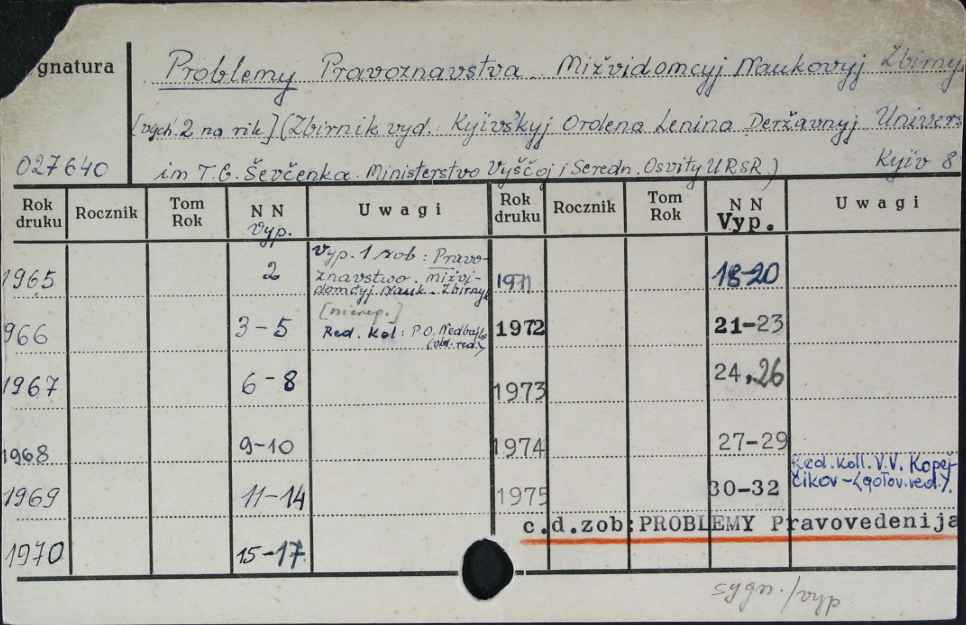 gnatura
Problemy Pravoznavstva Mižvidomcyj Naukovyj Zbirny
[vych. 2 na rik] (Zbirnik vyd. Kyivśkyj Ordena Lenina Deržavnyj Univers
027640 im T.G. Ševčenka. Ministerstvo Vyščoj i Seredn. Osvity URSR.) Kyiv 8
Rok druku Rocznik Tom Rok N N Vyp. Uwagi Rok druku Rocznik Tom Rok N N Vyp. Uwagi
1965 2 1971 18-20
Vyp. 1 zob: Pravo-
znavstwo. mižvi-
domcyj Nauk. Zbirnyk
966 3-5 1972 21-23
Red. kol: P.O. Nedbajlo
(obl. red.)
1967 6-8 1973 24,26
1968 9-10 1974 27-29
Red. koll. V.V. Kopej-
čikov-(gołov. red.).
1969 11-14 1975 30-32
c.d.zob: PROBLEMY Pravovedenija
1970 15-17
sygn./vyp